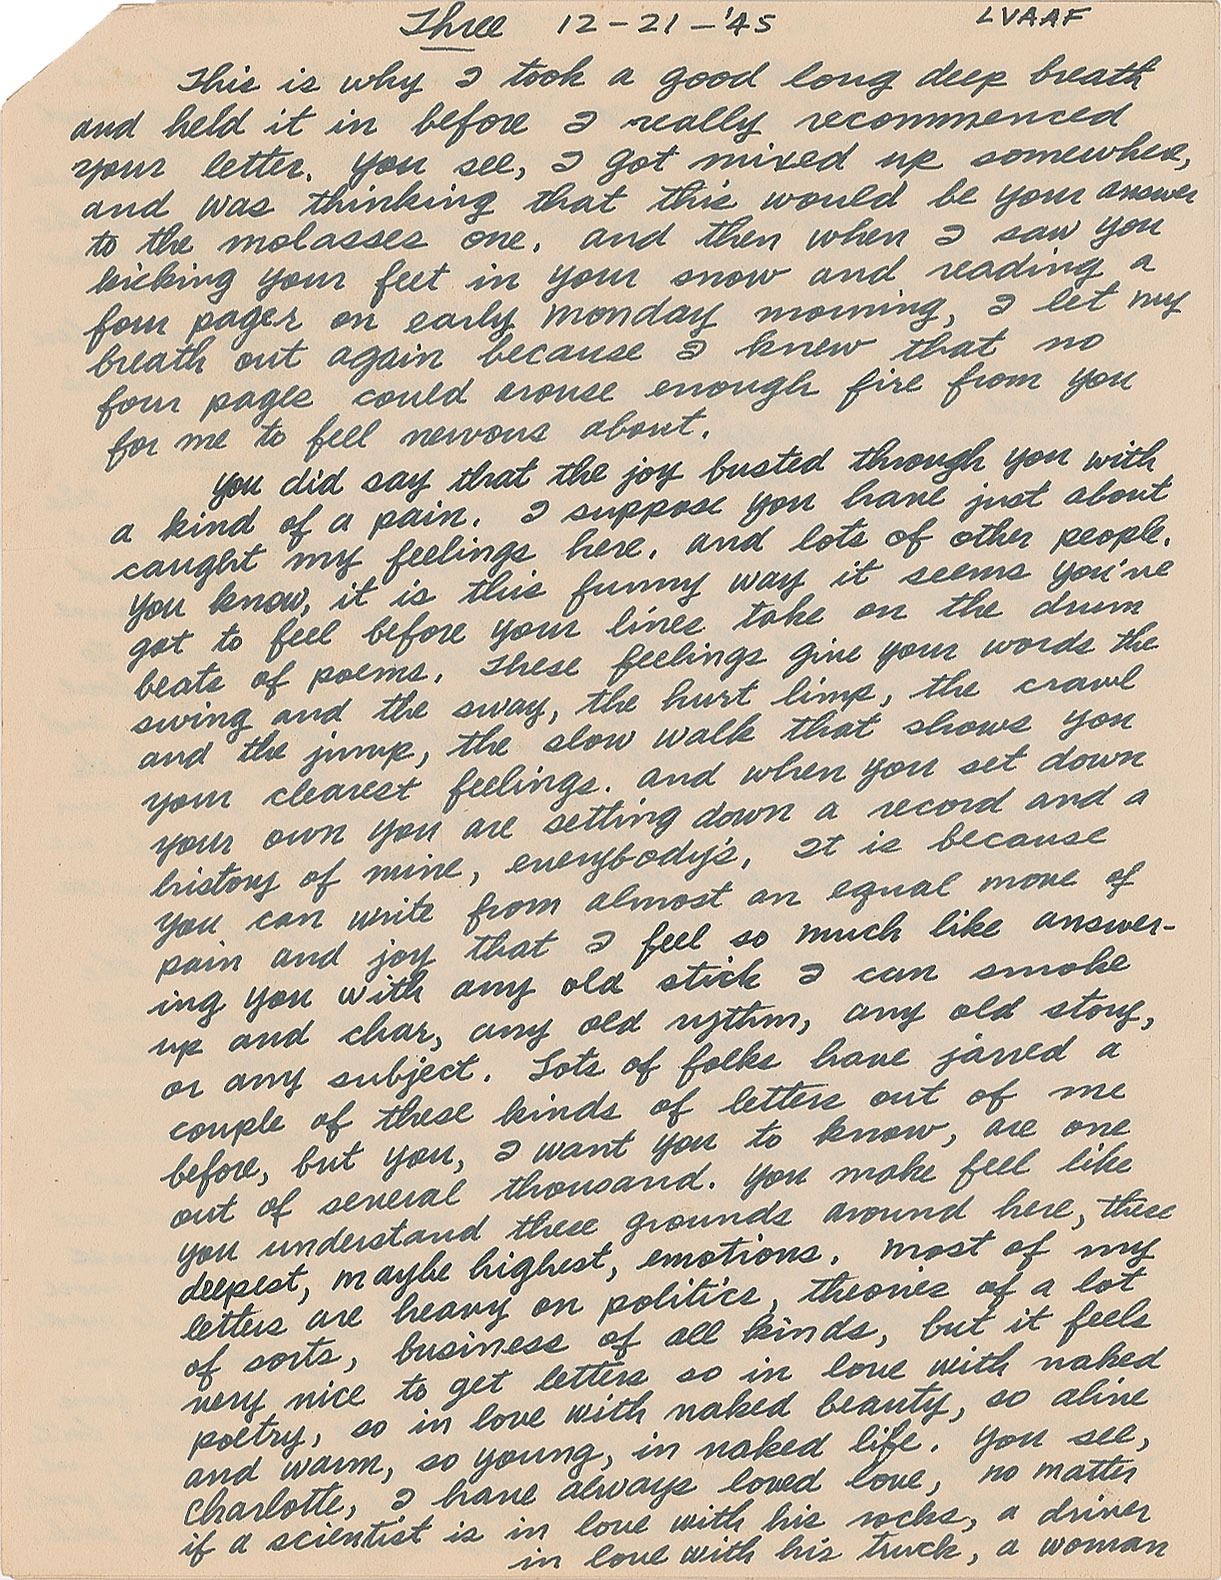 Three 12-21-'45 LVAAF
This is why I took a good long deep breath
and held it in before I really recommenced
your letter. You see, I got mixed up somewhere,
and was thinking that this would be your answer
to the molasses one. And then when I saw you
kicking your feet in your snow and reading a
four pager on early Monday morning, I let my
breath out again because I knew that no
four pages could arouse enough fire from you
for me to feel nervous about.
You did say that the joy busted through you with
a kind of a pain. I suppose you have just about
caught my feelings here. And lots of other people.
You know, it is this funny way it seems you've
got to feel before your lines take on the drum
beats of poems. These feelings give your words the
swing and the sway, the hurt limp, the crawl
and the jump, the slow walk that shows you
your clearest feelings. And when you set down
your own you are setting down a record and a
history of mine, everybody's. It is because
you can write from almost an equal move of
pain and joy that I feel so much like answer-
ing you with any old stick I can smoke
up and char, any old rythm, any old story,
or any subject. Lots of folks have jarred a
couple of these kinds of letters out of me
before, but you, I want you to know, are one
out of several thousand. You make feel like
you understand these grounds around here, these
deepest, maybe highest, emotions. Most of my
letters are heavy on politics, theories of a lot
of sorts, business of all kinds, but it feels
very nice to get letters so in love with naked
poetry, so in love with naked beauty, so alive
and warm, so young, in naked life. You see,
Charlotte, I have always loved love, no matter
if a scientist is in love with his rocks, a driver
in love with his truck, a woman